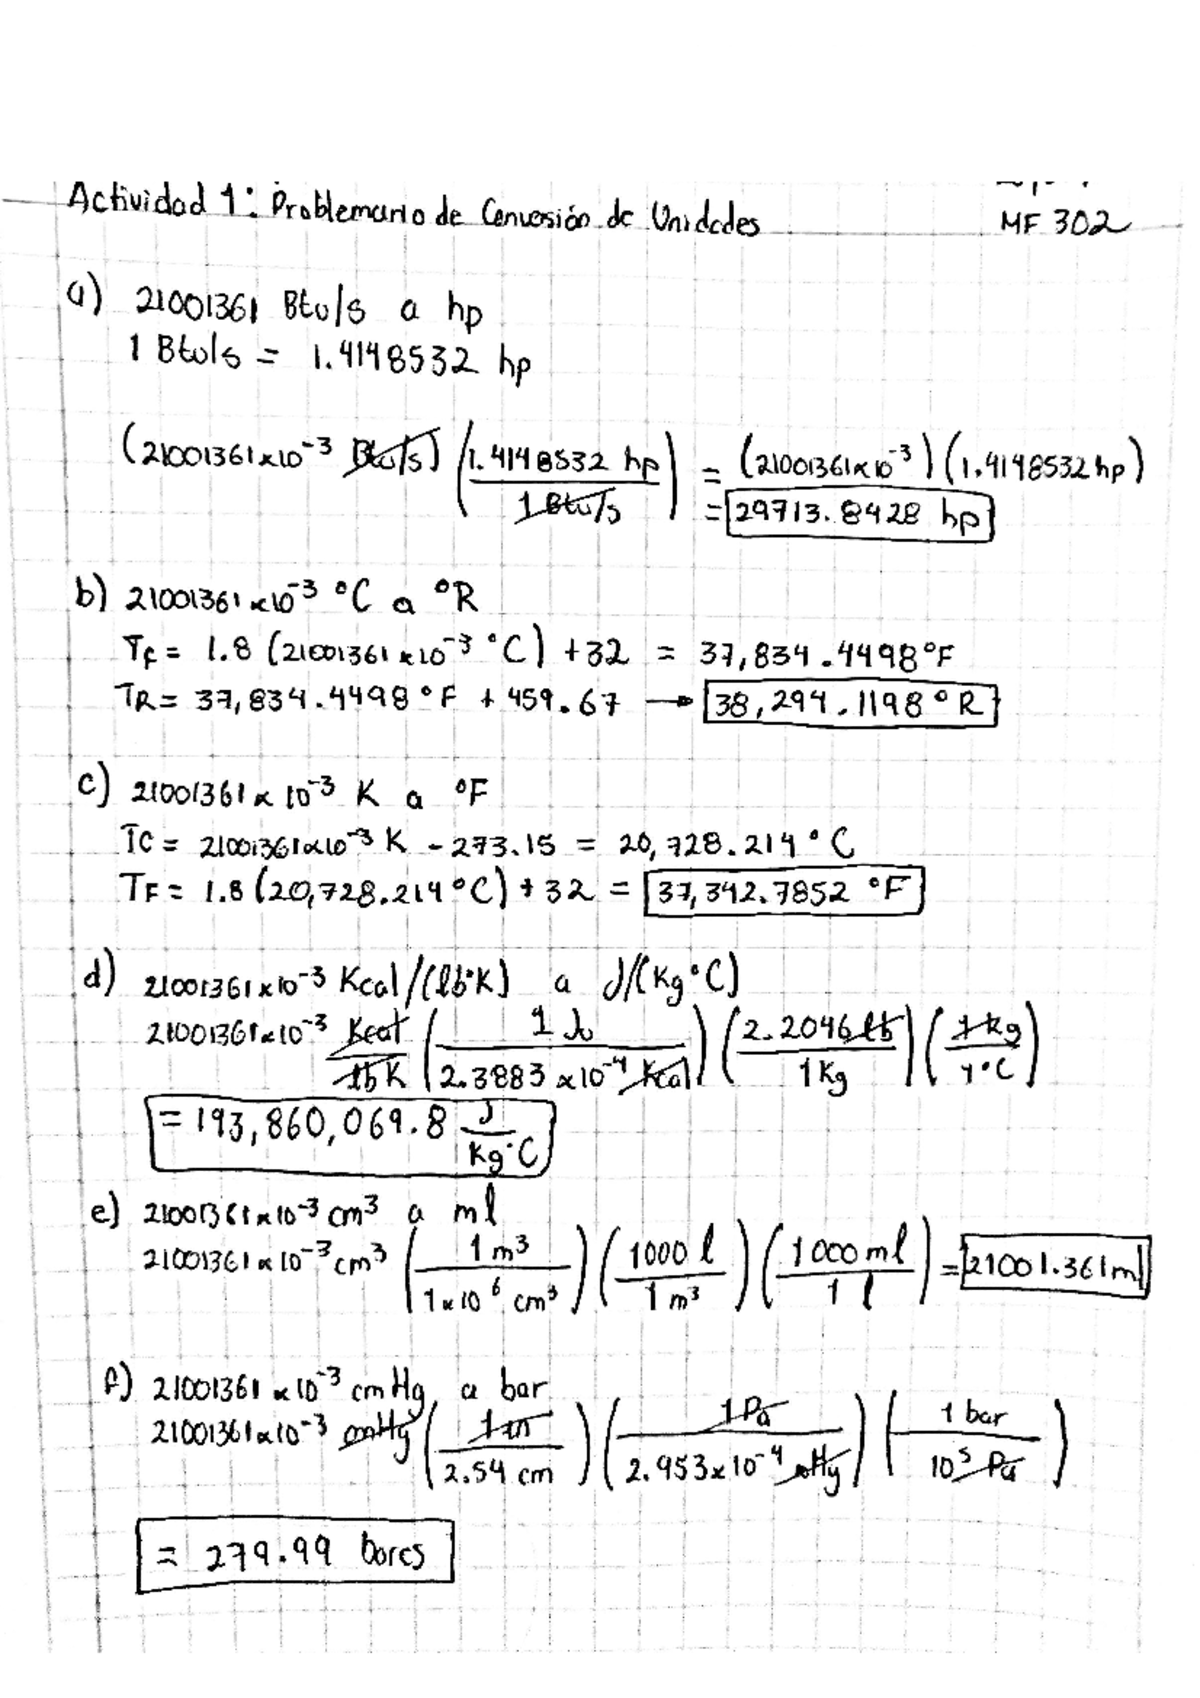 Actividad 1: Problemario de Conversión de Unidades
MF 302
a) 21001361 Btu/s a hp
1 Btu/s = 1.4148532 hp
(21001361x10⁻³ Btu/s) (1.4148532 hp / 1 Btu/s) = (21001361x10⁻³) (1.4148532 hp)
= 29713.8428 hp
b) 21001361x10⁻³ °C a °R
TF = 1.8 (21001361x10⁻³ °C) + 32 = 37,834.4498°F
TR = 37,834.4498°F + 459.67 → 38,294.1198°R
c) 21001361x10⁻³ K a °F
TC = 21001361x10⁻³ K - 273.15 = 20,728.214°C
TF = 1.8 (20,728.214°C) + 32 = 37,342.7852 °F
d) 21001361x10⁻³ Kcal/(lb·K) a J/(Kg°C)
21001361x10⁻³ Kcal/lb K (1 J / 2.3883x10⁻⁴ Kcal) (2.2046 lb / 1 Kg) (1 kg / 1°C)
= 193,860,069.8 J/Kg·C
e) 21001361x10⁻³ cm³ a ml
21001361x10⁻³ cm³ (1 m³ / 1x10⁶ cm³) (1000 l / 1 m³) (1000 ml / 1 l) = 21001.361 ml
f) 21001361x10⁻³ cmHg a bar
21001361x10⁻³ cmHg (1 in / 2.54 cm) (1 Pa / 2.953x10⁻⁴ Hg) (1 bar / 10⁵ Pa)
= 279.99 bares